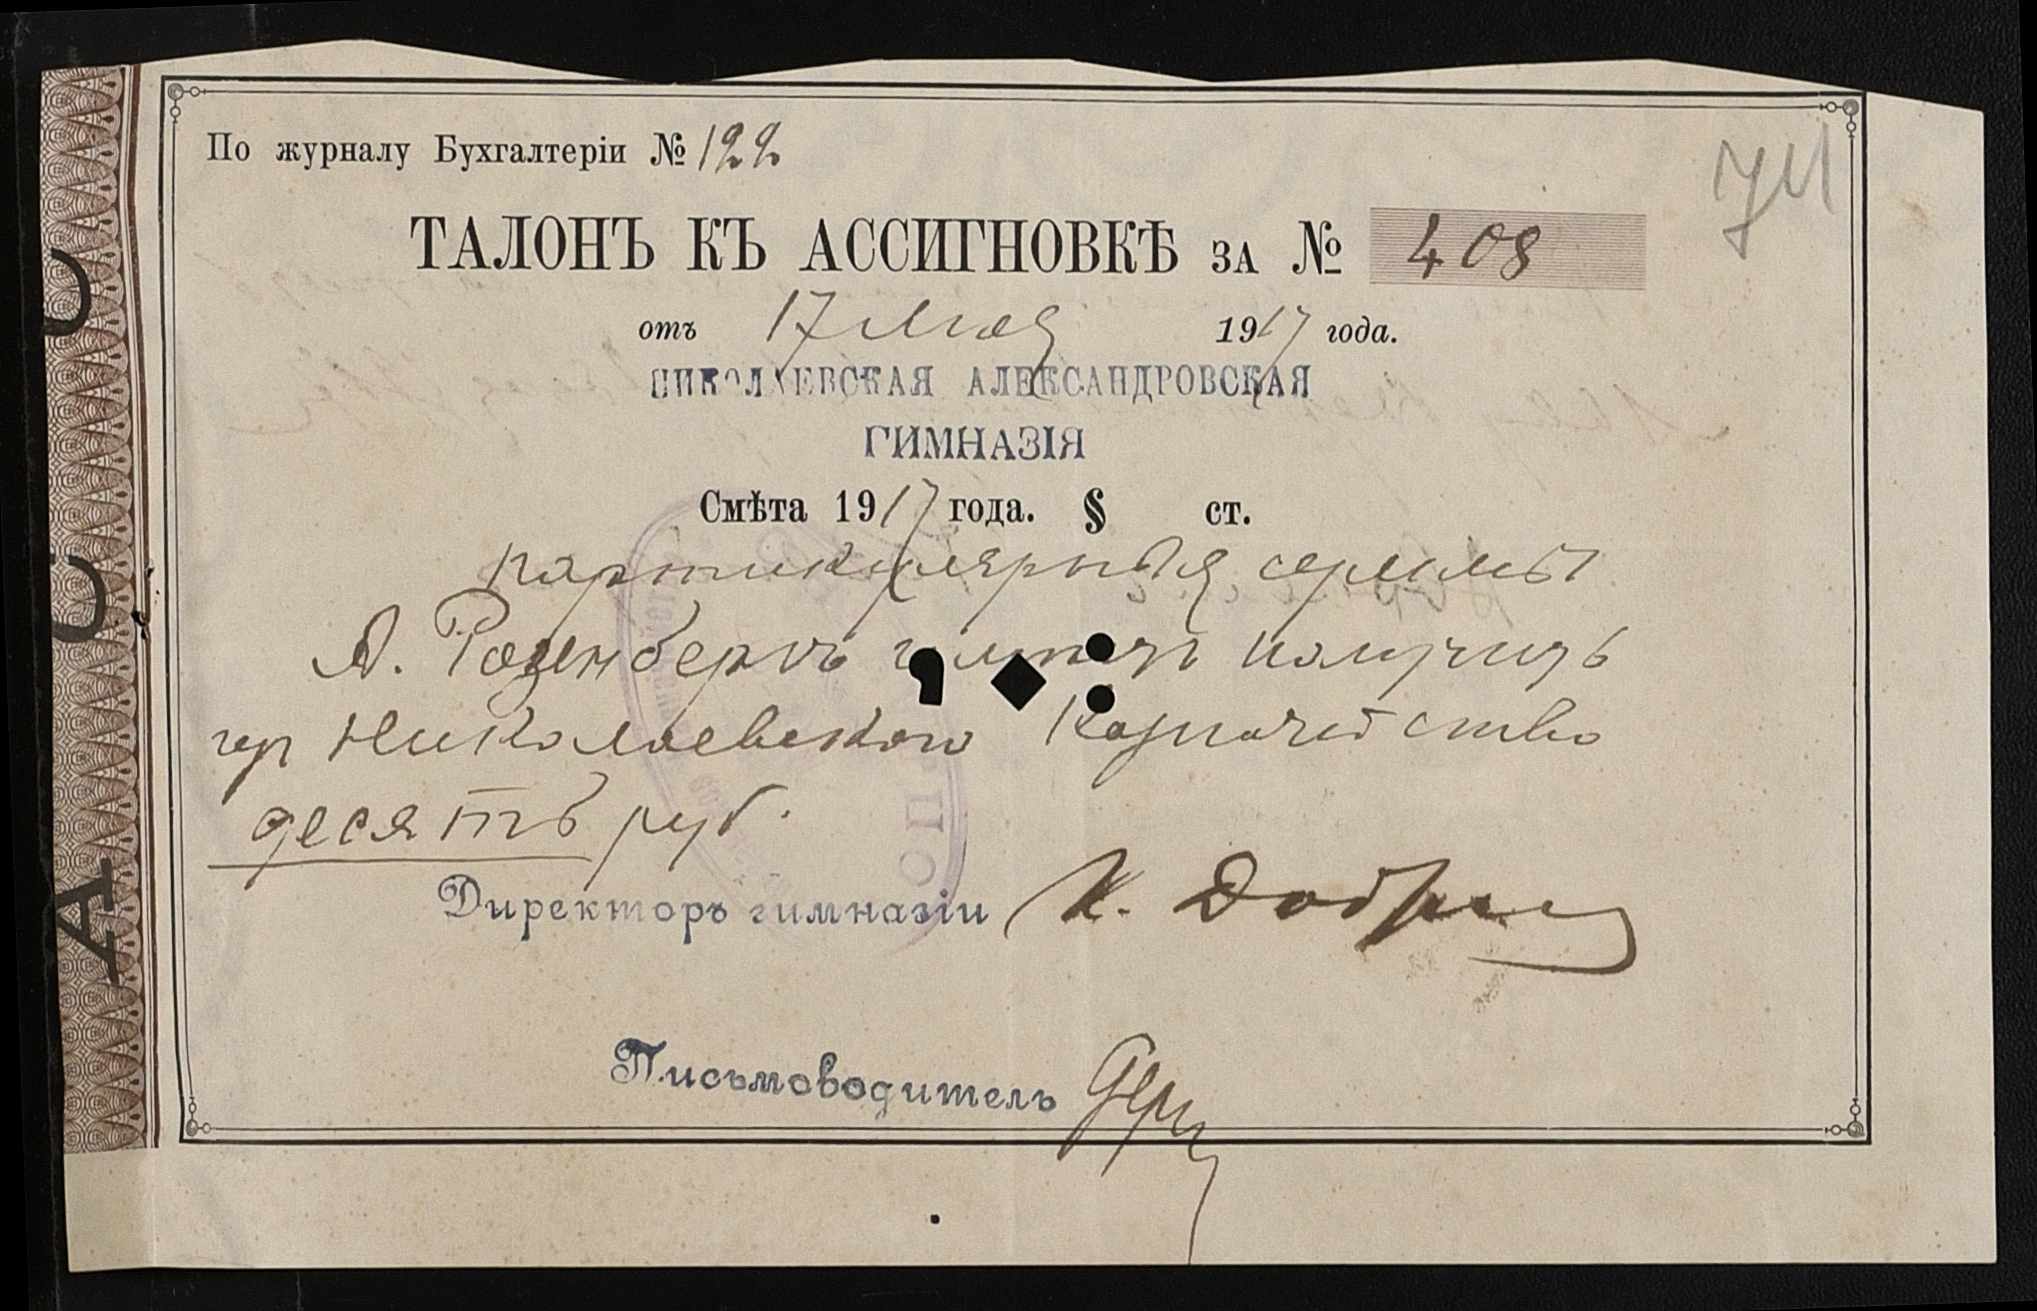 По журналу Бухгалтеріи № 122
ТАЛОНЪ КЪ АССИГНОВКѢ ЗА № 408
отъ 17 Мая 1917 года.
НИКОЛАЕВСКАЯ АЛЕКСАНДРОВСКАЯ
ГИМНАЗІЯ
Смѣта 1917 года. § ст.
партикулярныя суммы
А. Розенбергъ получить
Николаевского Казначейство
десять руб.
Директоръ гимназіи К.
Письмоводитель
АССС